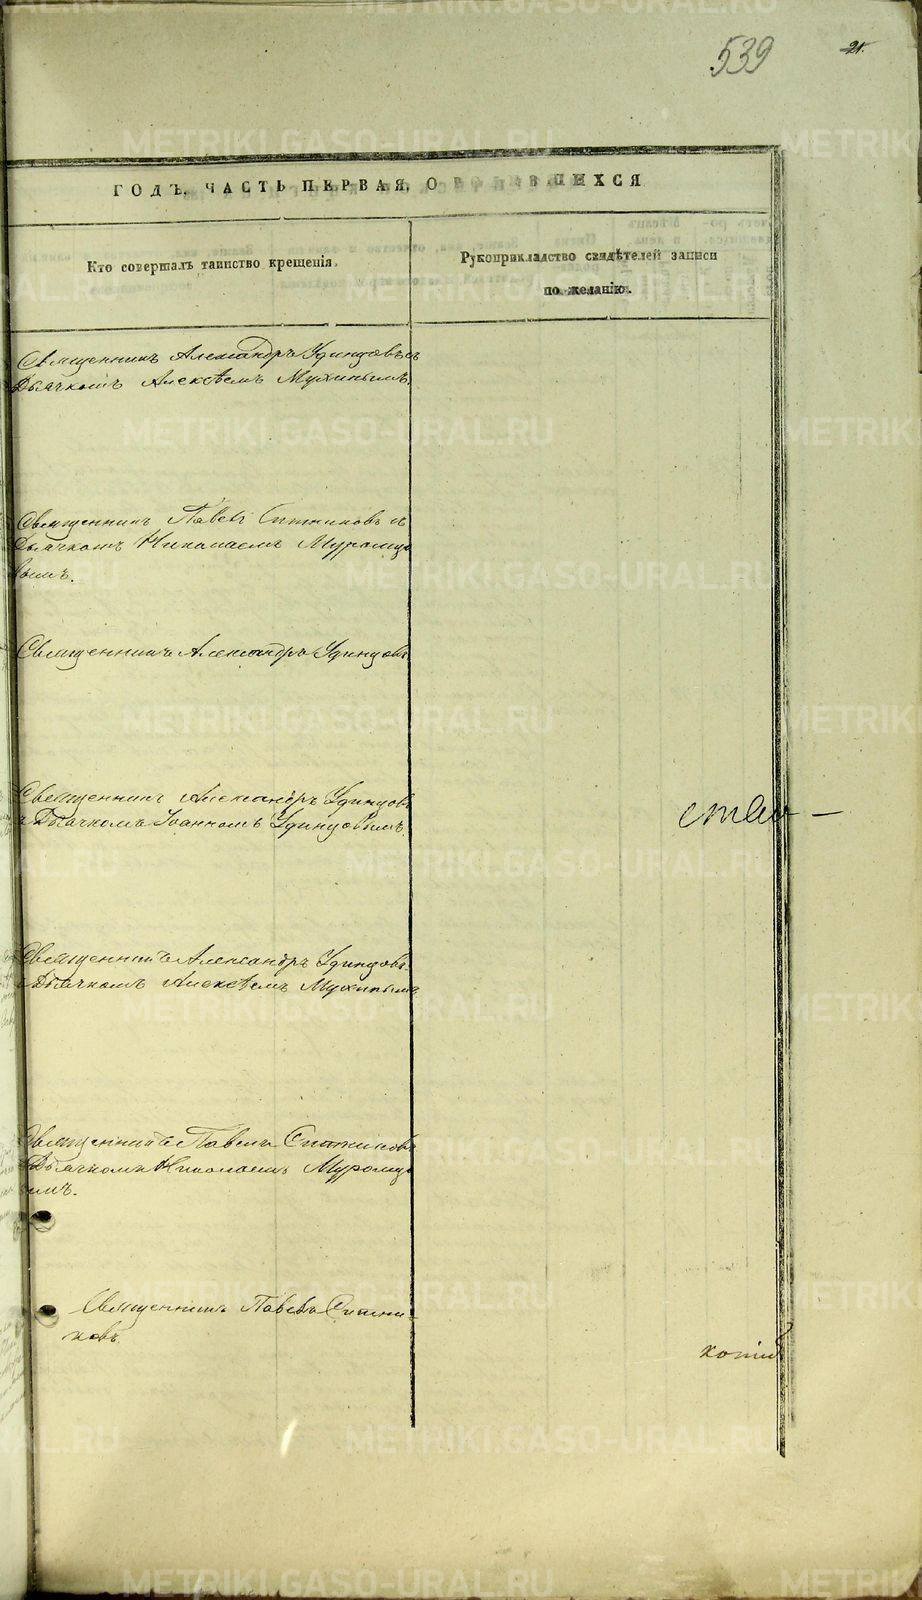 539
21.
ГОДЪ, ЧАСТЬ ПЕРВАЯ, О РОДИВШИХСЯ
Кто совершалъ таинство крещенія.
Рукоприкладство свидѣтелей записи
по желанію.
Священникъ Александръ Удинцовъ съ
Дьячкомъ Алексѣемъ Мухинымъ.
Священникъ Павелъ Ситниковъ съ
Дьячкомъ Николаемъ Муромцо
вымъ.
Священникъ Александръ Удинцовъ
Священникъ Александръ Удинцовъ
съ Дьячкомъ Іоанномъ Удинцовымъ.
Священникъ Александръ Удинцовъ
съ Дьячкомъ Алексѣемъ Мухинымъ
Священникъ Павелъ Ситниковъ
Дьячкомъ Николаемъ Муромцо
вымъ.
Священникъ Павелъ Ситни-
ковъ.
METRIKI.GASO-URAL.RU